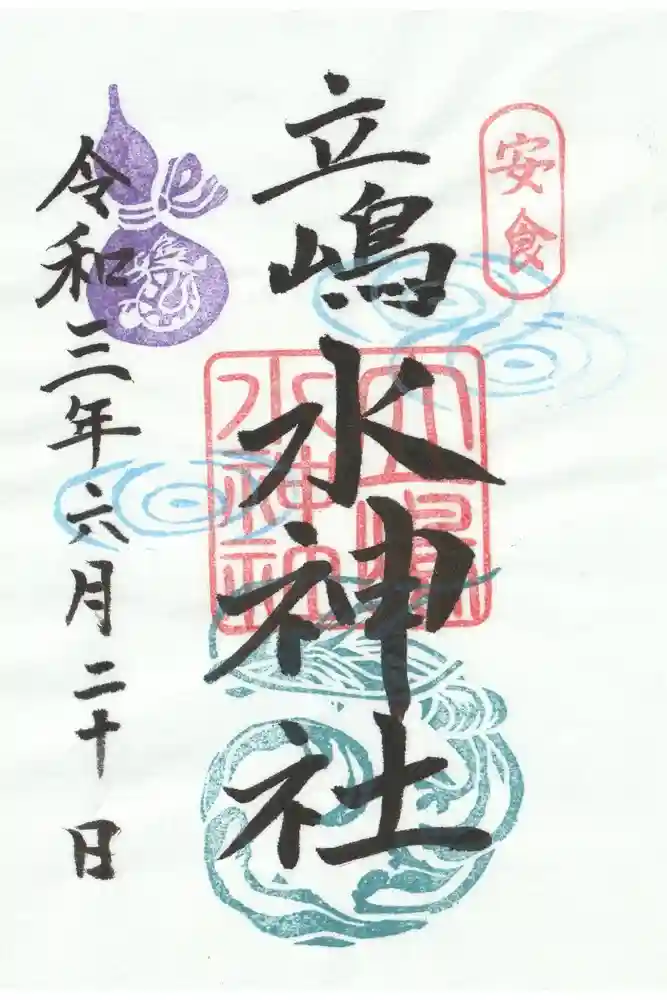 安食
立嶋水神社
立嶋水神社
令和三年六月二十日